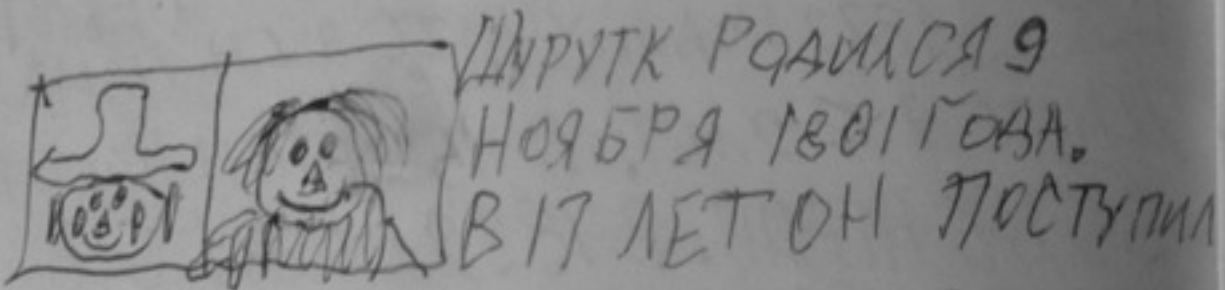 ШУРУТК РОДИЛСЯ 9
НОЯБРЯ 1801 ГОДА.
В 17 ЛЕТ ОН ПОСТУПИЛ